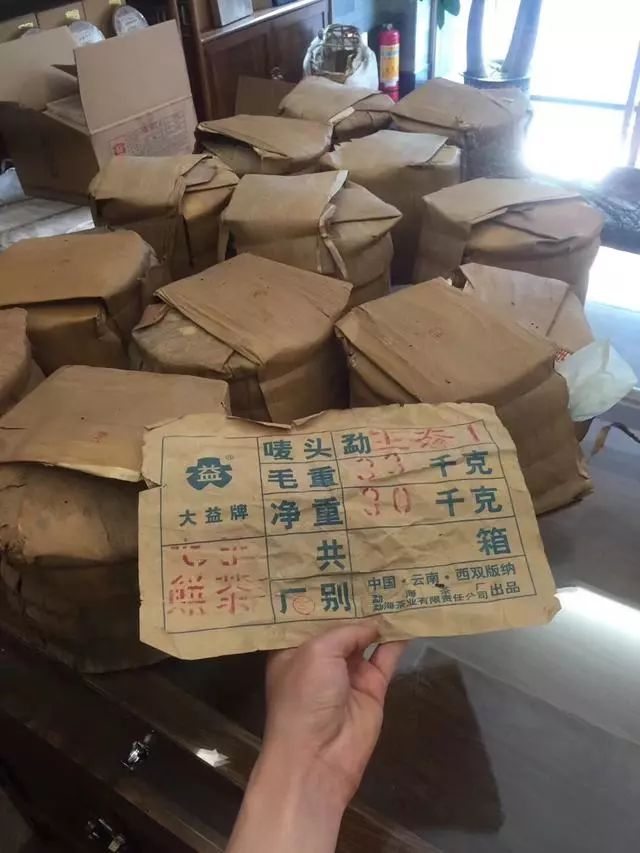 益®
大益牌
七子
茶
唛头 勐
毛重 33 千克
净重 30 千克
共 箱
厂别 中国·云南·西双版纳
勐海茶厂
勐海茶业有限责任公司 出品